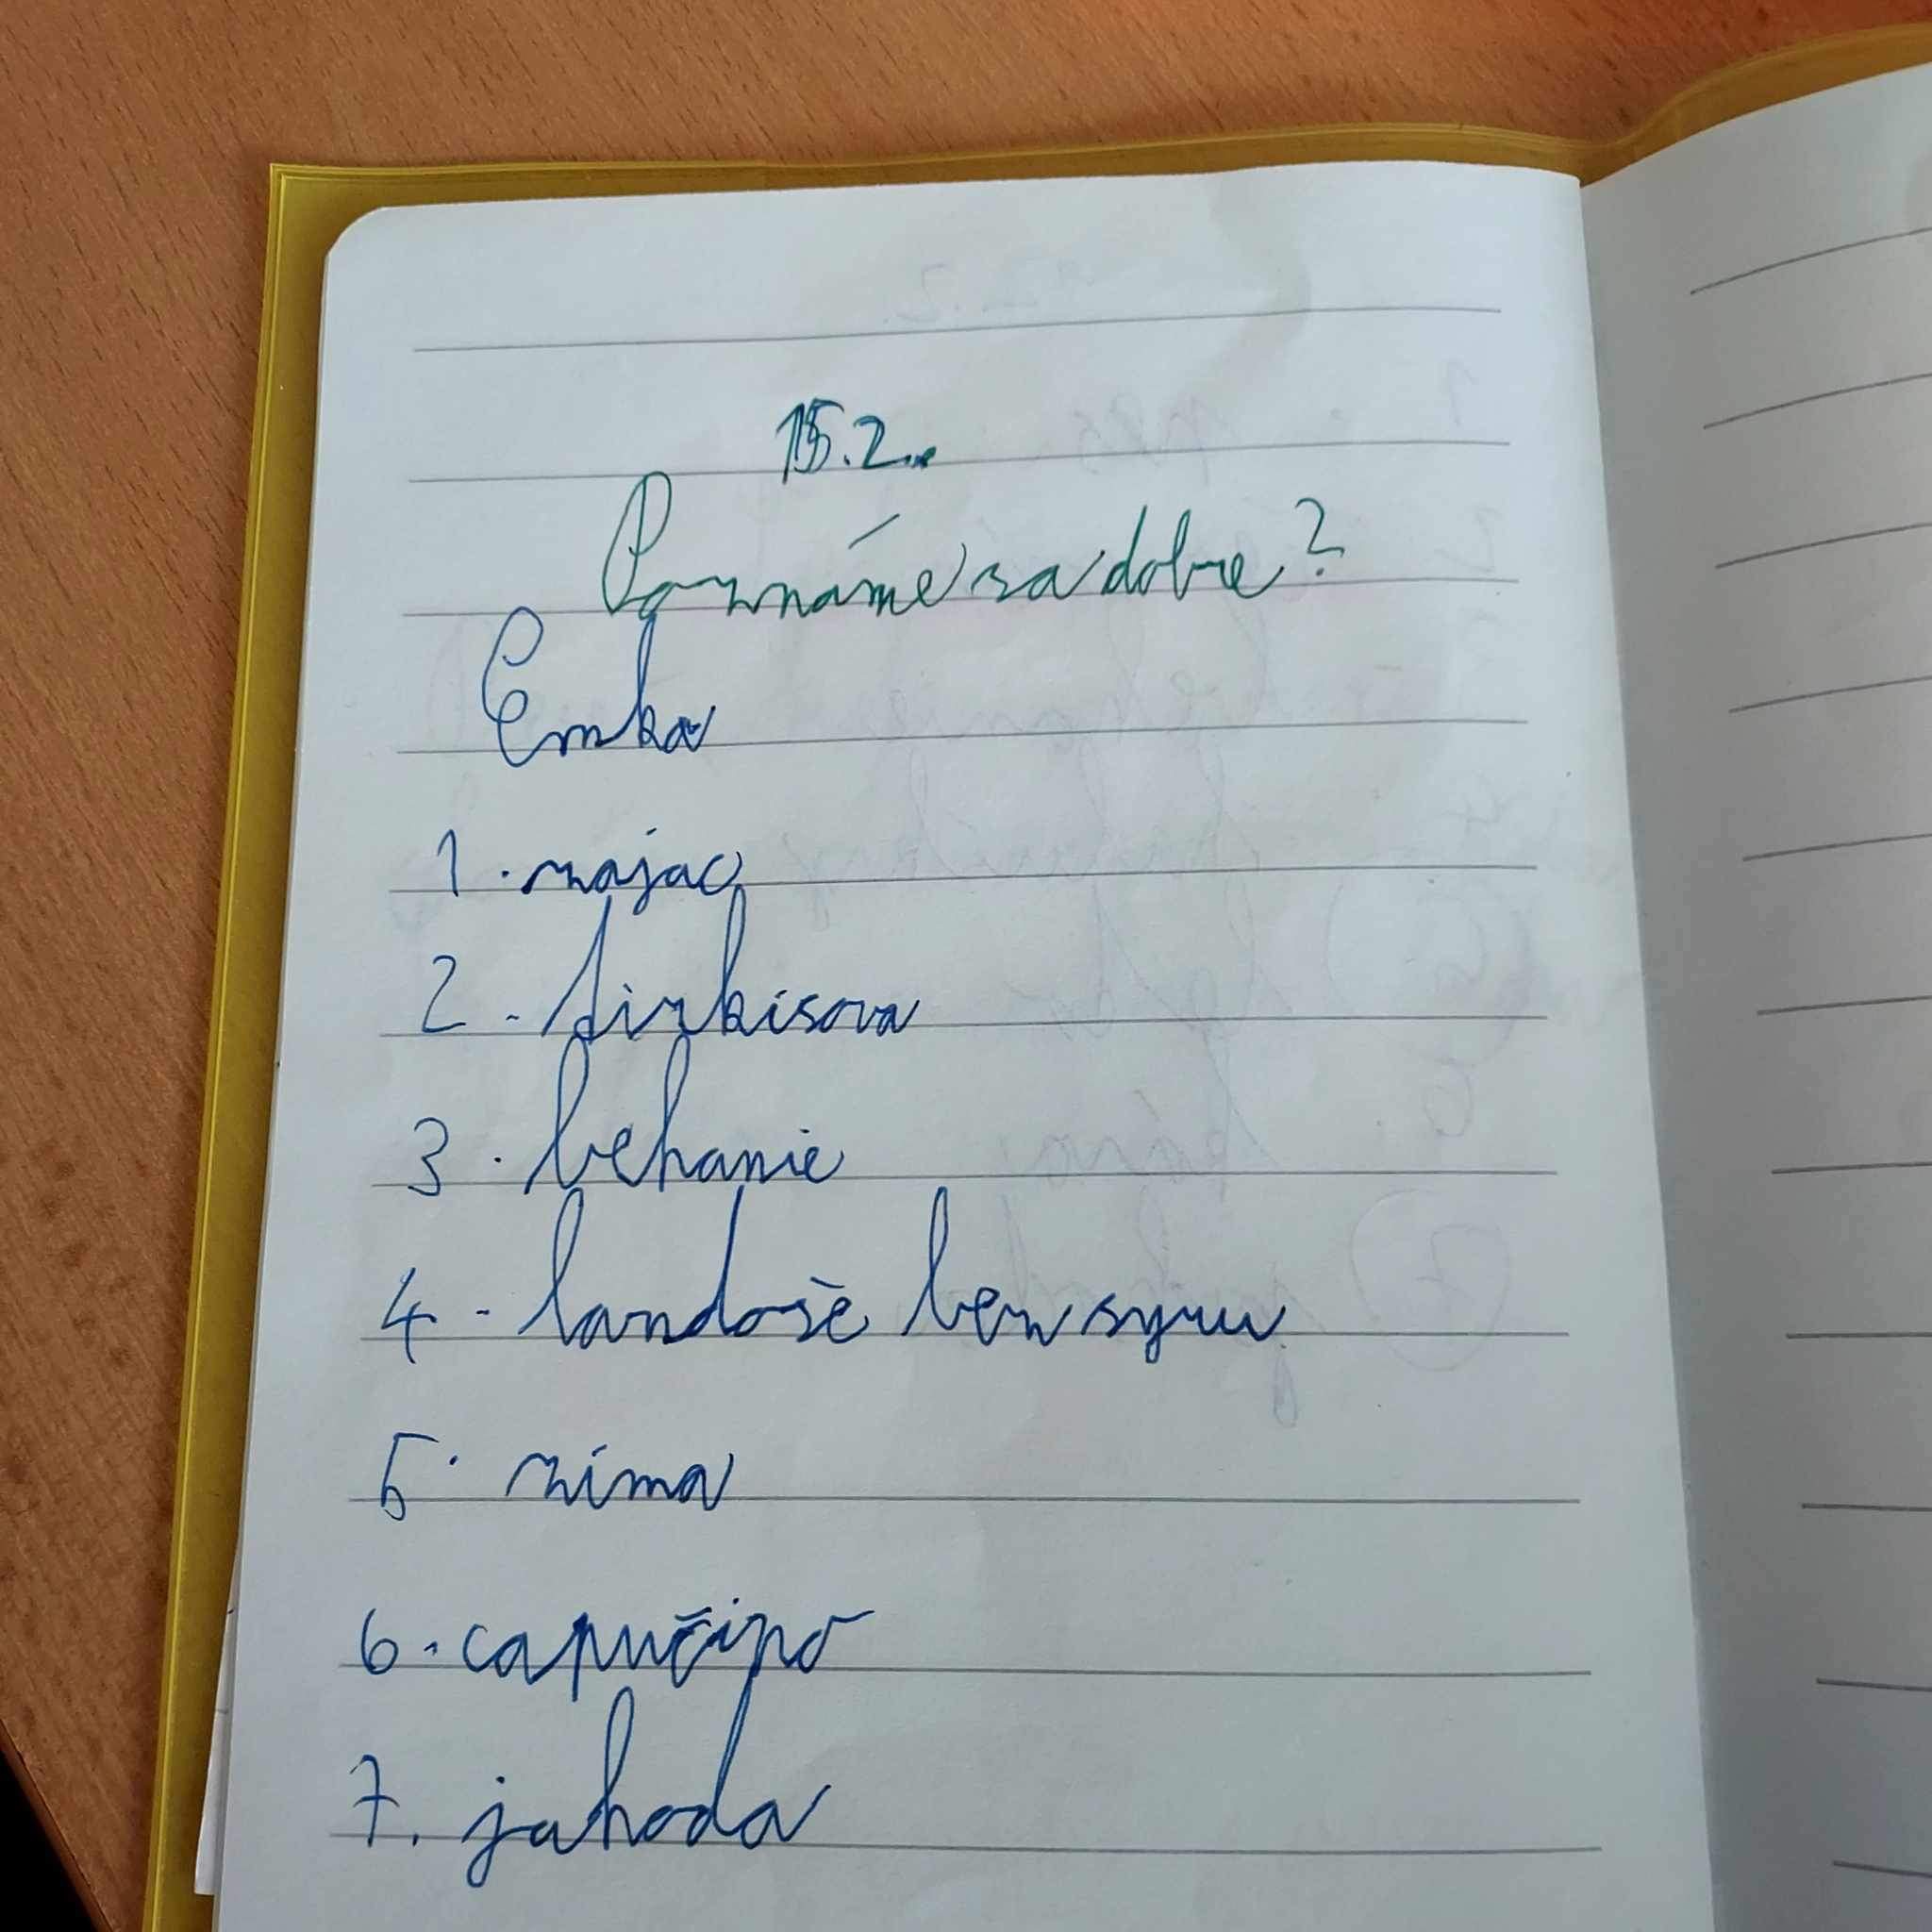 15.2.
Poznáme sa dobre?
Emka
1. zajac
2. tirkisova
3. behanie
4. langoše bez syru
5. zima
6. capučino
7. jahoda